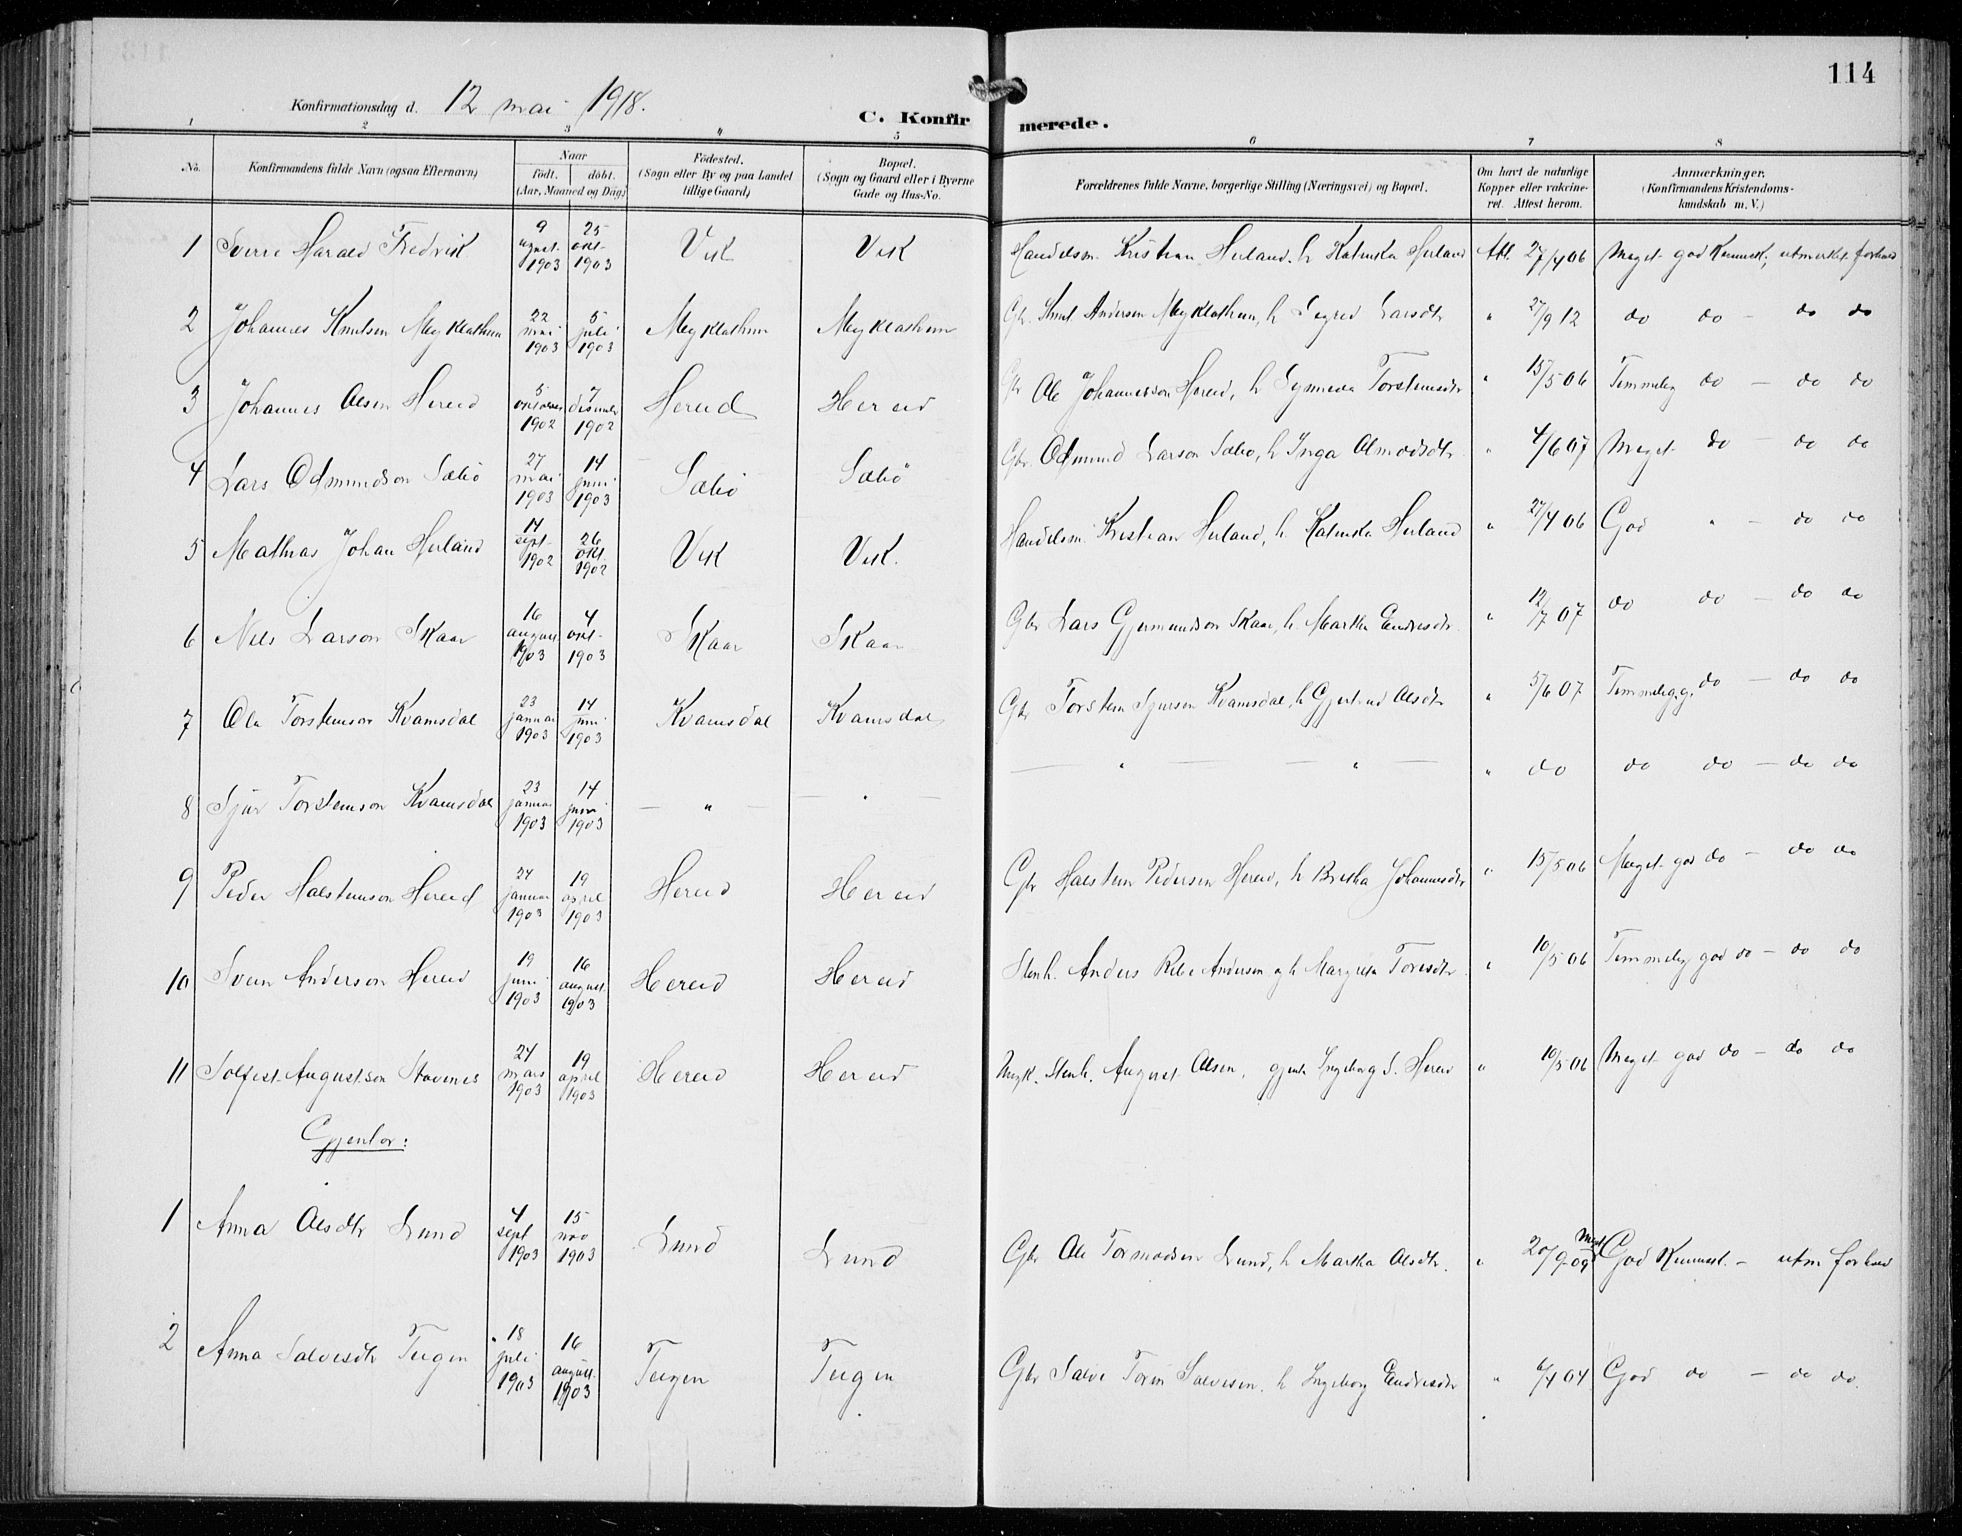 114
Konfirmationsdag d. 12 mai 1918.
C. Konfirmerede.
1 2 3 4 5 6 7 8
No.
Konfirmandens fulde Navn (ogsaa Efternavn)
Naar
født. døbt.
(Aar, Maaned og Dag)
Fødested.
(Sogn eller By og paa Landet
tillige Gaard)
Bopæl.
(Sogn og Gaard eller i Byerne
Gade og Hus-No.
Forældrenes fulde Navne, borgerlige Stilling (Næringsvei) og Bopæl.
Om havt de naturlige
Kopper eller vakcine-
ret. Attest herom.
Anmærkninger.
(Konfirmandens Kristendoms-
kundskab m. V.)
1 Sverre Harald Fredrik 9 august 1903 25 okt. 1903 Vik Vik Handelsm. Kristian Herland, h Katinka Herland Att. 27/4 06 Meget god Kunnsk, utmerket forhold
2 Johannes Knutson Myklathun 22 mai 1903 5 juli 1903 Myklathun Myklathun Gbr. Knut Anderson Myklathun, h Sigrid Larsdtr " 27/9 12 do do - do do
3 Johannes Olson Hereid 5 oktober 1902 7 desember 1902 Hereid Hereid Gbr Ole Johannesson Hereid, h Synneva Torsteinsdtr " 15/5 06 Temmelig do - do do
4 Lars Odmundson Sæbø 27 mai 1903 14 juni 1903 Sæbø Sæbø Gbr Odmund Larson Sæbø, h Inga Olmodsdtr " 4/6 07 Meget do - do do
5 Mathias Johan Herland 14 sept 1902 26 okt. 1902 Vik Vik. Handelsm. Kristian Herland, h Katinka Herland " 27/4 06 God " - do do
6 Nils Larson Skaar 16 august 1903 4 okt- 1903 Skaar Skaar Gbr Lars Gjermundson Skaar, h. Martha Endresdtr. " 12/7 07 do do - do do
7 Ola Torsteinson Kvamsdal 23 januar 1903 14 juni 1903 Kvamsdal Kvamsdal Gbr Torstein Sjurson Kvamsdal, h Gjertrud Olsdtr " 5/6 07 Temmelig g. do - do do
8 Sjur Torsteinson Kvamsdal 23 januar 1903 14 juni 1903 - " - - " - - " - - " - " do do do - do do
9 Peder Halsteinson Hereid 24 januar 1903 19 april 1903 Hereid Hereid Gbr Halstein Pederson Hereid, h Britha Johannesdtr " 15/5 06 Meget god do - do do
10 Svein Anderson Hereid 19 juni 1903 16 august 1903 Hereid Hereid Stenh. Anders Anderson og h Margreta Toresdtr. " 10/5 06 Temmelig god do - do do
11 Solfest Augustson Stavenes 24 mars 1903 19 april 1903 Hereid Hereid Ungk. Stenh. August Olsen, gjente Ingeborg S. Hereid " 10/5 06 Meget god do - do do
Gjentor:
1 Anna Olsdtr Lund 4 sept 1903 15 nov 1903 Lund Lund Gbr Ole Tormodson Lund, h Martha Olsdtr. " 20/9-09 Meget God Kunnsk. - utm. forhold
2 Anna Salvesdtr Teigen 18 juli 1903 16 august 1903 Teigen Teigen Gbr Salve Salvesen, h Ingeborg Endresdtr " 6/4 04 God do - do do.